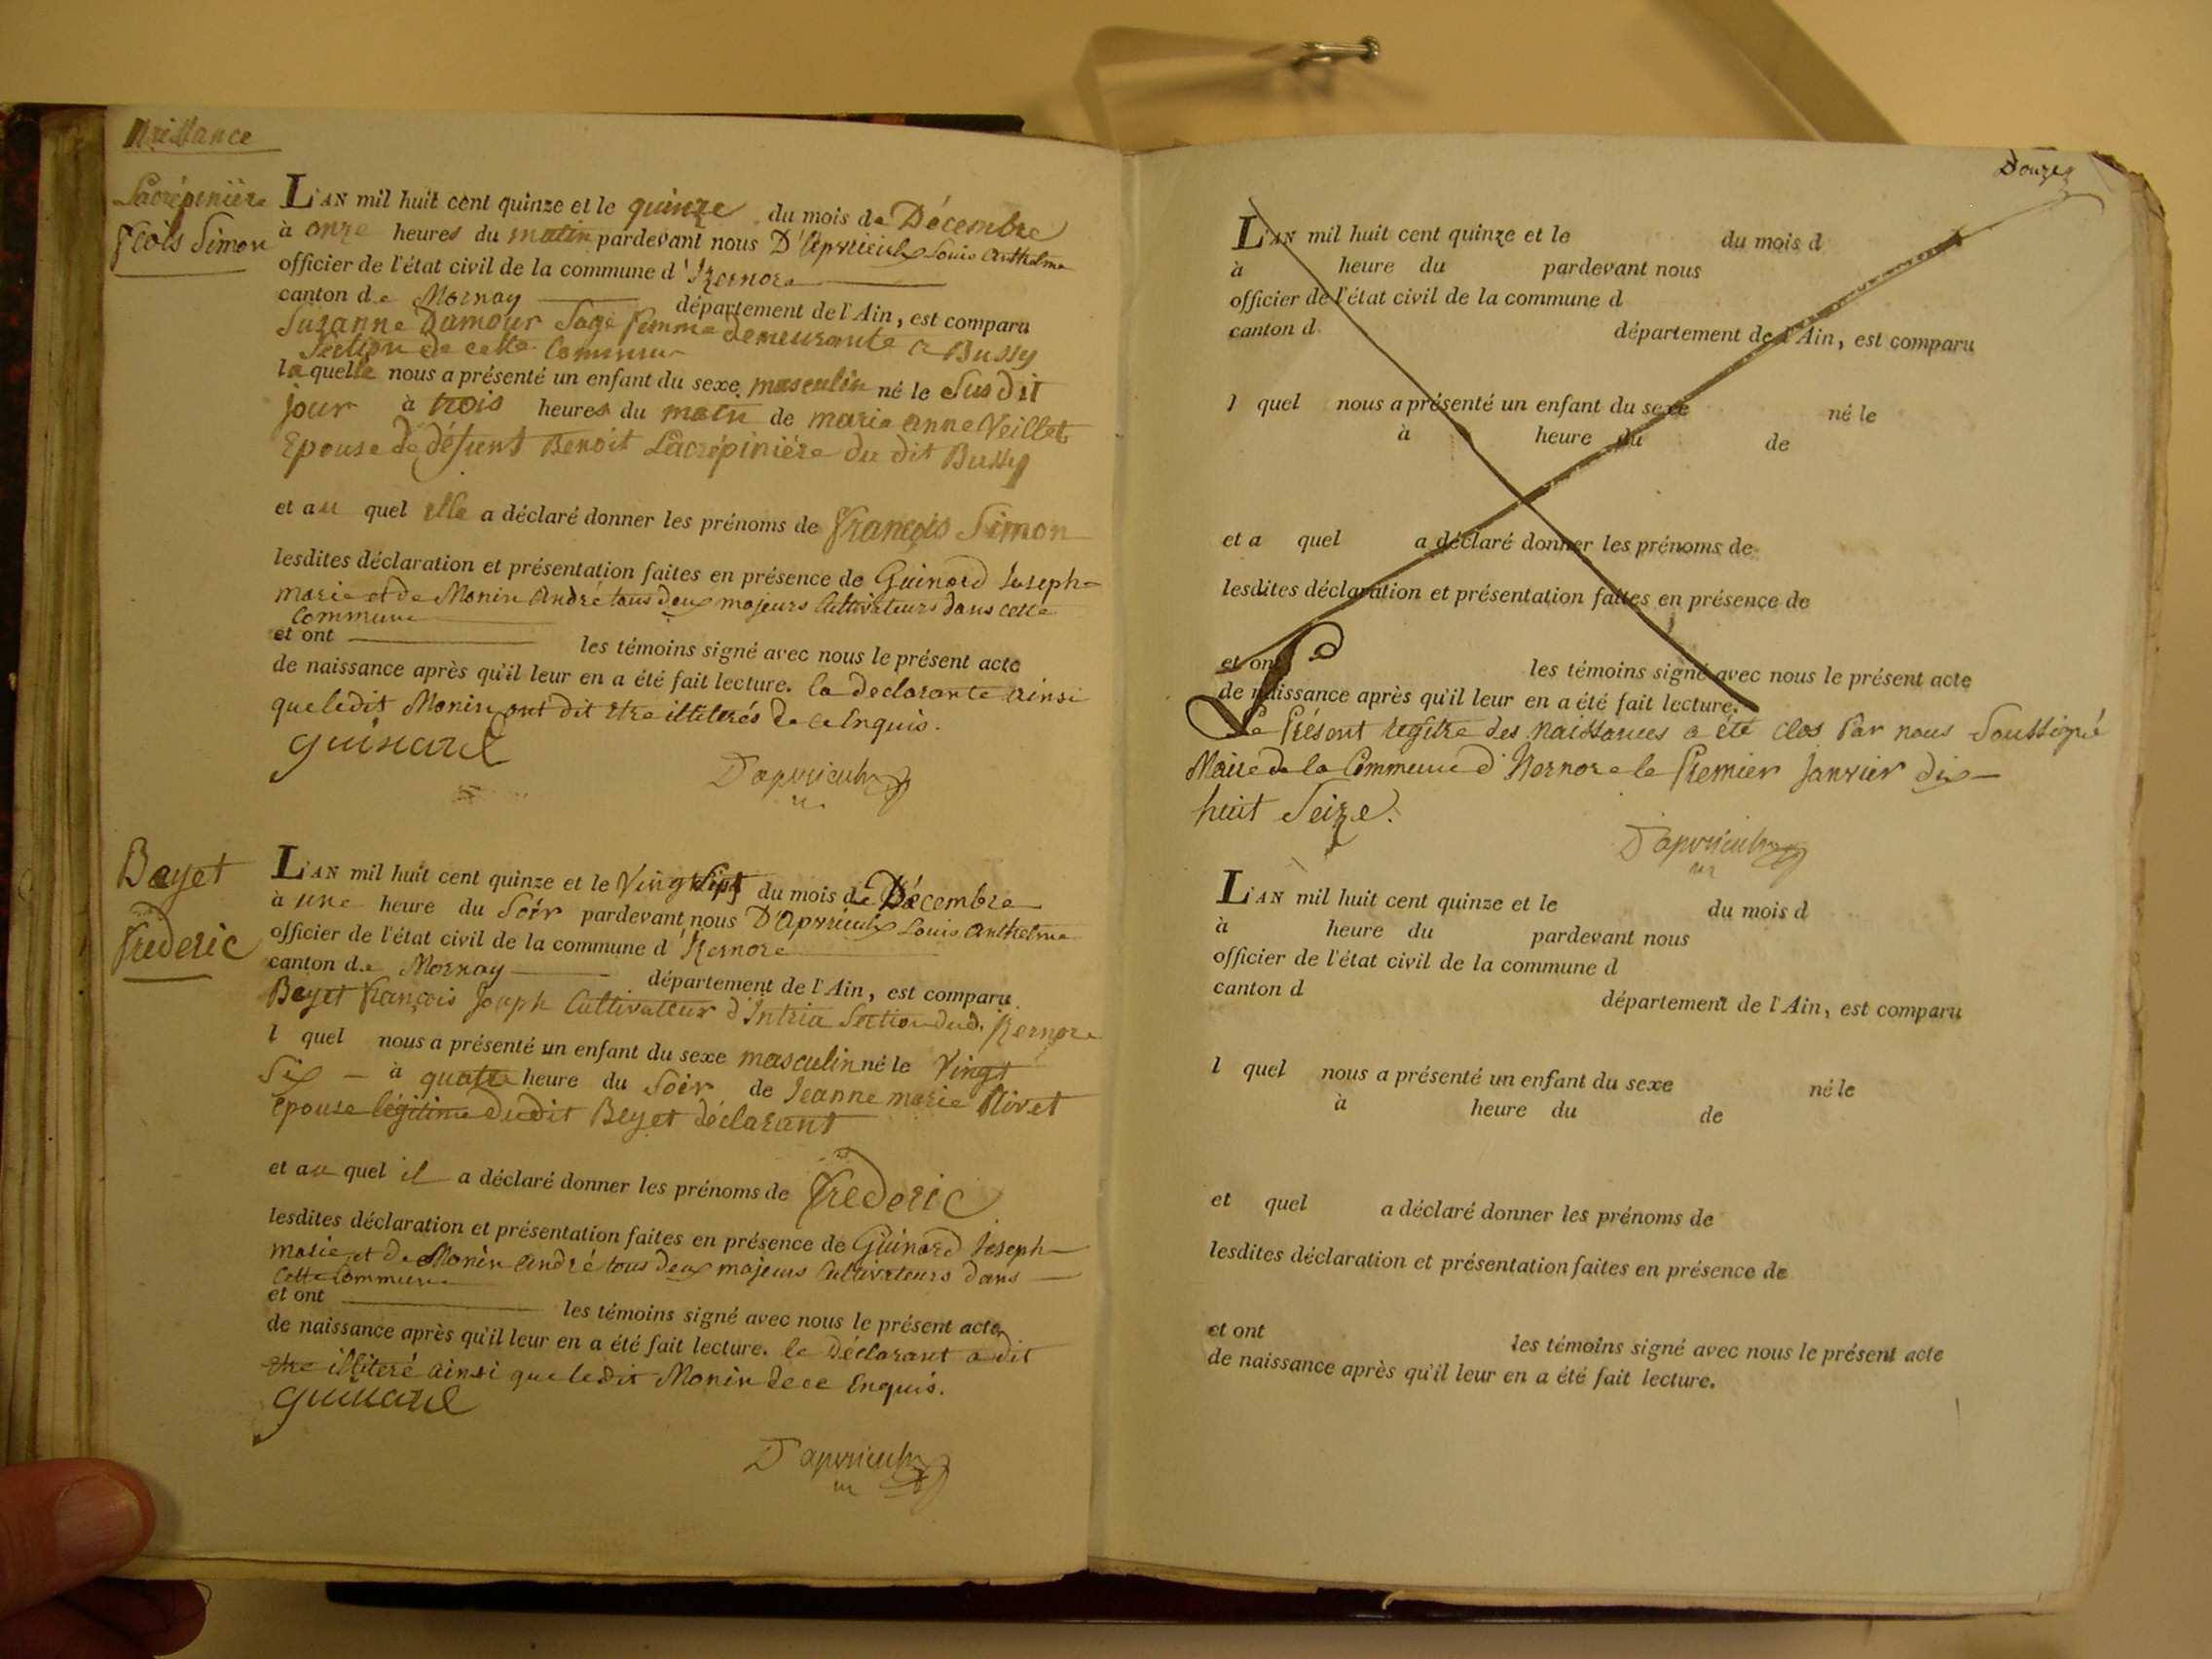 Naissance
Lacrépinière
fçois Simon
L'AN mil huit cent quinze et le quinze du mois de Décembre
à onze heures du matin pardevant nous D'apvrieulx Louis Anthelme
officier de l'état civil de la commune d'Izernore
canton de Mornay département de l'Ain, est comparu
Suzanne Damour Sage femme demeurante à Bussy
Section de cette Commune
laquelle nous a présenté un enfant du sexe masculin né le Susdit
jour à trois heures du matin de marie anne Veillet
Epouse de défunt Benoit Lacrépinière du dit Bussy
et au quel elle a déclaré donner les prénoms de François Simon
lesdites déclaration et présentation faites en présence de Guinard Joseph
marie et de Monin André tous deux majeurs Cultivateurs dans cette
Commune
et ont les témoins signé avec nous le présent acte
de naissance après qu'il leur en a été fait lecture. la declarante ainsi
que ledit Monin ont dit être illiterés de ce Enquis.
Guinard
D'apvrieulx
Beyet
Frederic
L'AN mil huit cent quinze et le Vingt Sept du mois de Décembre
à une heure du Soir pardevant nous D'Apvrieulx Louis Anthelme
officier de l'état civil de la commune d'Izernore
canton de Mornay département de l'Ain, est comparu
Beyet François Joseph Cultivateur d'Intria Section dud. Izernore
l quel nous a présenté un enfant du sexe masculin né le Vingt
Six à quatre heure du Soir de Jeanne marie Nivet
épouse légitime dudit Beyet déclarant
et au quel il a déclaré donner les prénoms de Frederic
lesdites déclaration et présentation faites en présence de Guinard Joseph
marie et de Monin André tous deux majeurs Cultivateurs dans
Cette Commune
et ont les témoins signé avec nous le présent acte
de naissance après qu'il leur en a été fait lecture. le Déclarant a dit
être illiteré ainsi que ledit Monin de ce Enquis.
Guinard
D'apvrieulx
Douze
L'AN mil huit cent quinze et le du mois d
à heure du pardevant nous
officier de l'état civil de la commune d
canton d département de l'Ain, est comparu
l quel nous a présenté un enfant du sexe né le
à heure du de
et a quel a déclaré donner les prénoms de
lesdites déclaration et présentation faites en présence de
et ont les témoins signé avec nous le présent acte
de naissance après qu'il leur en a été fait lecture.
Le Présent registre des Naissances a été Clos Par nous Soussigné
Maire de la Commune d'Izernore le Premier Janvier dix
huit Seize.
D'apvrieulx
L'AN mil huit cent quinze et le du mois d
à heure du pardevant nous
officier de l'état civil de la commune d
canton d département de l'Ain, est comparu
l quel nous a présenté un enfant du sexe né le
à heure du de
et quel a déclaré donner les prénoms de
lesdites déclaration et présentation faites en présence de
et ont les témoins signé avec nous le présent acte
de naissance après qu'il leur en a été fait lecture.